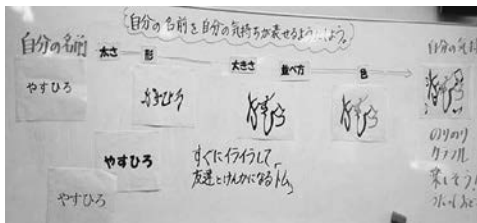 自分の名前を自分の気持ちが表せるようにしよう。
自分の名前
太さ
形
大きさ
並べ方
色
自分の気持
やすひろ
やすひろ
やすひろ
やすひろ
すぐにイライラして
友達とけんかになる「トム」
のりのり
カラフル
楽しそう!